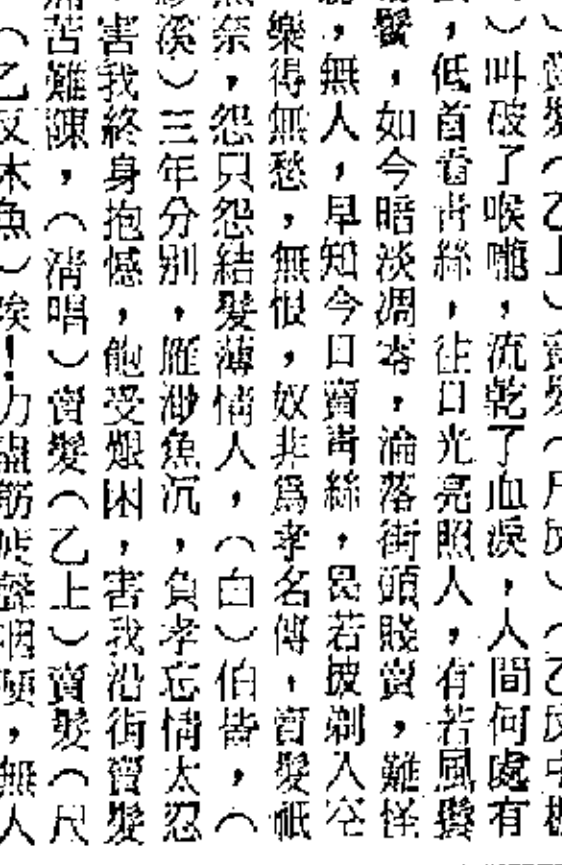 ）賣髮（乙上）賣髮（尺反）（乙反中板
）叫破了喉嚨，流乾了血淚，人間何處有
，低首看青絲，往日光亮照人，有若風鬟
鬢，如今暗淡凋零，淪落街頭賤賣，難怪
，無人，早知今日賣青絲，曷若披剃入空
樂得無愁，無恨，奴非爲孝名傳，賣髮祇
無奈，怨只怨結髮薄情人，（白）伯皆，（
溪）三年分別，雁渺魚沉，負孝忘情太忍
害我終身抱憾，飽受艱困，害我沿街賣髮
痛苦難陳，（清唱）賣髮（乙上）賣髮（尺
（乙反木魚）唉！力盡筋疲聲咽哽，無人